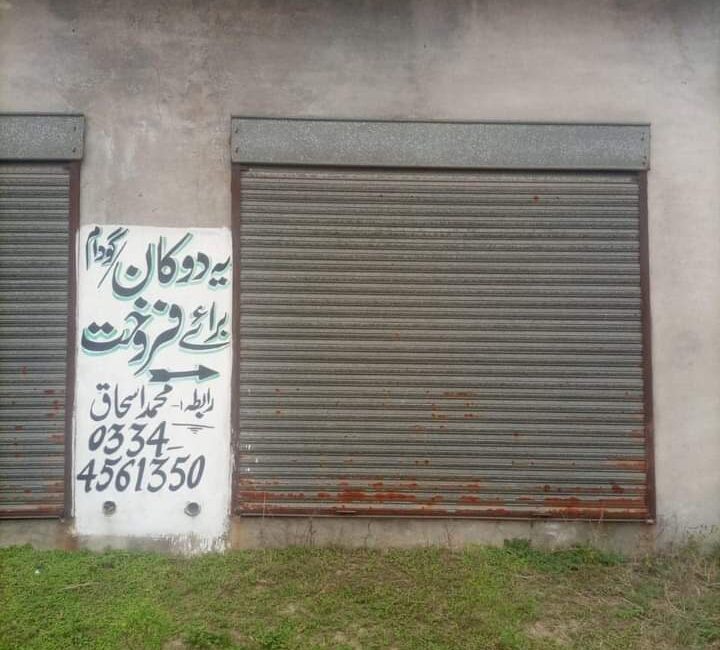 یہ دوکان/گودام
برائے فروخت
رابطہ:۔ محمد اسحاق
0334-
4561350